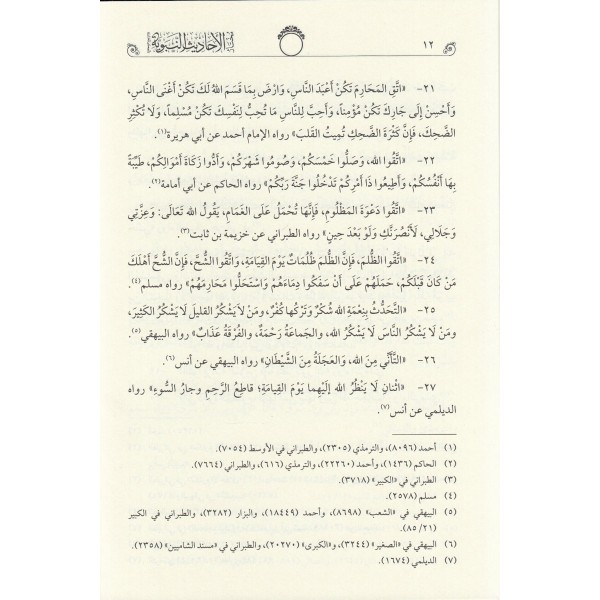 ١٢
الأحاديث النبوية
٢١- «اتَّقِ المَحَارِمَ تَكُنْ أَعْبَدَ النَّاسِ، وَارْضَ بِمَا قَسَمَ اللهُ لَكَ تَكُنْ أَغْنَى النَّاسِ،
وَأَحْسِنْ إِلَى جَارِكَ تَكُنْ مُؤْمِناً، وَأَحِبَّ لِلنَّاسِ مَا تُحِبُّ لِنَفْسِكَ تَكُنْ مُسْلِماً، وَلَا تُكْثِرِ
الضَّحِكَ، فَإِنَّ كَثْرَةَ الضَّحِكِ تُمِيتُ القَلْبَ» رواه الإمام أحمد عن أبي هريرة(١).
٢٢- «اتَّقُوا الله، وَصَلُّوا خَمْسَكُمْ، وَصُومُوا شَهْرَكُمْ، وَأَدُّوا زَكَاةَ أَمْوَالِكُمْ، طَيِّبَةً
بِهَا أَنْفُسُكُمْ، وَأَطِيعُوا ذَا أَمْرِكُمْ تَدْخُلُوا جَنَّةَ رَبِّكُمْ» رواه الحاكم عن أبي أمامة(٢).
٢٣- «اتَّقُوا دَعْوَةَ المَظْلُومِ، فَإِنَّهَا تُحْمَلُ عَلَى الغَمَامِ، يَقُولُ اللهُ تَعَالَى: وَعِزَّتِي
وَجَلَالِي، لَأَنْصُرَنَّكِ وَلَوْ بَعْدَ حِينٍ» رواه الطبراني عن خزيمة بن ثابت(٣).
٢٤- «اتَّقُوا الظُّلْمَ، فَإِنَّ الظُّلْمَ ظُلُمَاتٌ يَوْمَ القِيَامَةِ، وَاتَّقُوا الشُّحَّ، فَإِنَّ الشُّحَّ أَهْلَكَ
مَنْ كَانَ قَبْلَكُمْ، حَمَلَهُمْ عَلَى أَنْ سَفَكُوا دِمَاءَهُمْ وَاسْتَحَلُّوا مَحَارِمَهُمْ» رواه مسلم(٤).
٢٥- «التَّحَدُّثُ بِنِعْمَةِ الله شُكْرٌ وَتَرْكُهَا كُفْرٌ، وَمَنْ لاَ يَشْكُرُ القليلَ لَا يَشْكُرُ الكَثِيرَ،
ومَنْ لَا يَشْكُرُ النَّاسَ لَا يَشْكُرُ الله، والجَمَاعَةُ رَحْمَةٌ، والفُرْقَةُ عَذَابٌ» رواه البيهقي(٥).
٢٦- «التَّأَنِّي مِنَ الله، وَالعَجَلَةُ مِنَ الشَّيْطَانِ» رواه البيهقي عن أنس(٦).
٢٧- «اثْنَانِ لَا يَنْظُرُ الله إِلَيْهِما يَوْمَ القِيَامَةِ؛ قاطِعُ الرَّحِمِ وجارُ السُّوءِ» رواه
الديلمي عن أنس(٧).
(١) أحمد (٨٠٩٦)، والترمذي (٢٣٠٥)، والطبراني في الأوسط (٧٠٥٤).
(٢) الحاكم (١٤٣٦)، وأحمد (٢٢٢٦٠)، والترمذي (٦١٦)، والطبراني (٧٦٦٤).
(٣) الطبراني في «الكبير» (٣٧١٨).
(٤) مسلم (٢٥٧٨).
(٥) البيهقي في «الشعب» (٨٦٩٨)، وأحمد (١٨٤٤٩)، والبزار (٣٢٨٢)، والطبراني في الكبير
(٢١/ ٨٥).
(٦) البيهقي في «الصغير» (٣٢٤٤)، و«الكبرى» (٢٠٢٧٠)، والطبراني في «مسند الشاميين» (٢٣٥٨).
(٧) الديلمي (١٦٧٤).